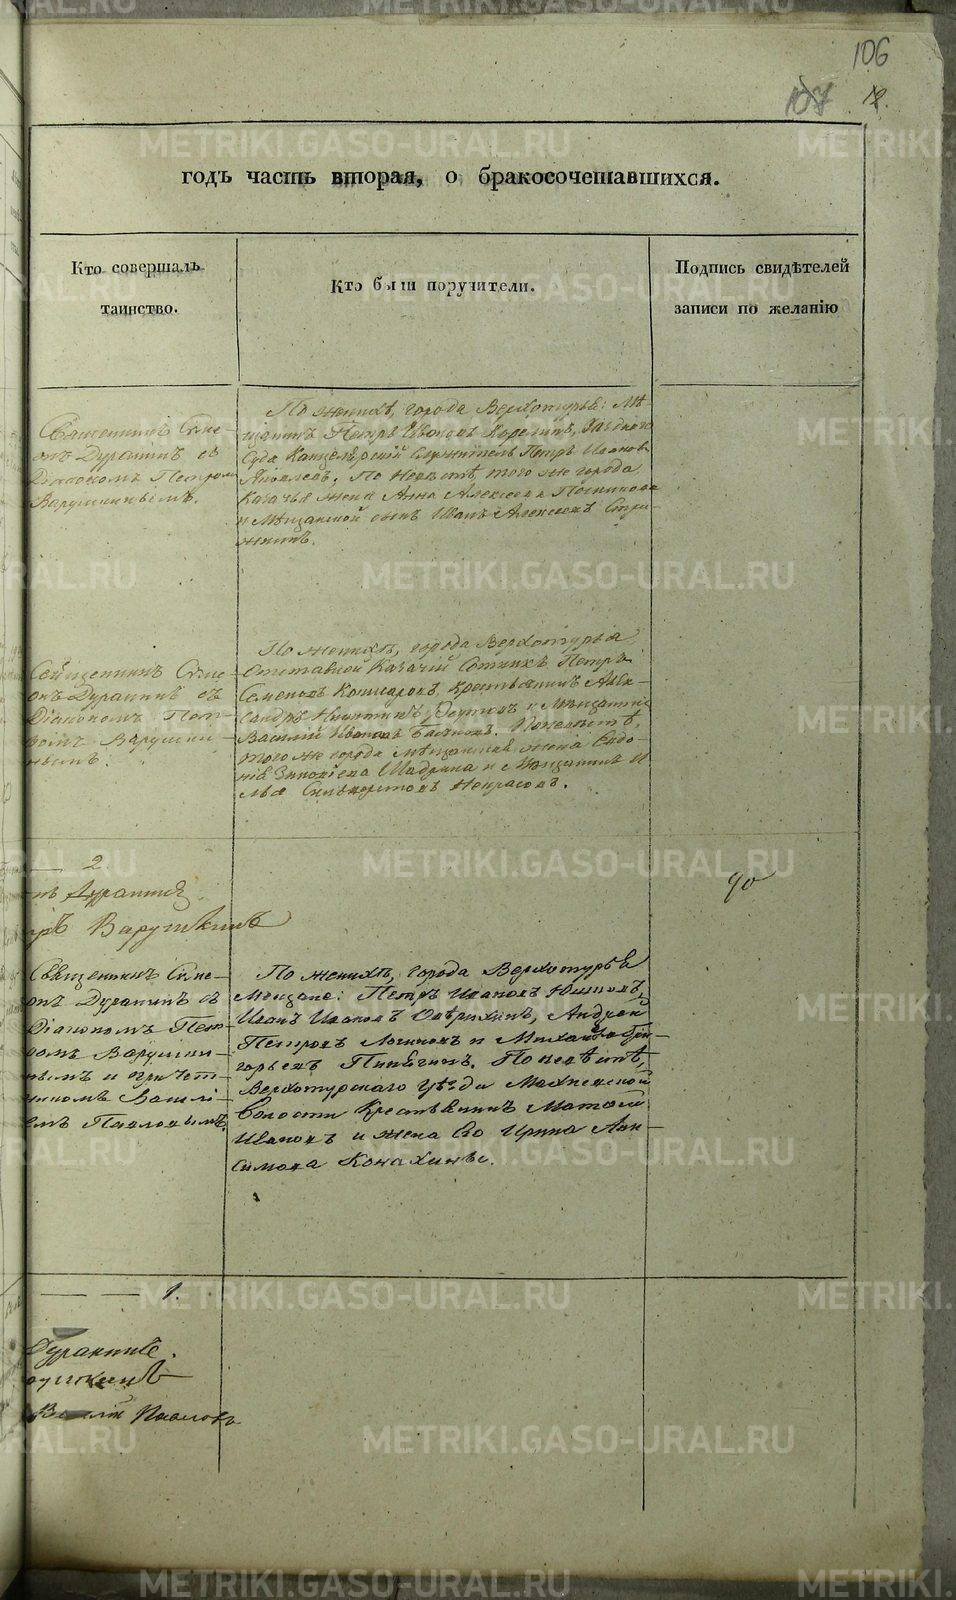 106
107 18.
годъ часть вторая, о бракосочетавшихся.
Кто совершалъ
таинство.
Кто были поручители.
Подпись свидѣтелей
записи по желанію
Священникъ Симе-
онъ Дурашинъ съ
Діакономъ Петром
Варушкинымъ.
По женихѣ, города Верхотурья: Мѣ-
щанинъ Петръ Ивановъ Корелинъ,
Суда Канцелярскій Служитель Петръ Иванов
Яковлевъ. По невѣстѣ, того же города
Казачья жена Анна Алексеева Постникова
и Мѣщанской сынъ Иванъ Алексеевъ Стри-
жевъ.
Священникъ Симе-
онъ Дурашинъ съ
Діакономъ Пет-
ромъ Варушки-
нымъ.
По женихѣ, города Верхотурья
Отставной Казачій Сотникъ Петръ
Семеновъ Комаровъ, Крестьянинъ Алек-
сандръ Никитинъ и Мѣщанинъ
Василій Ивановъ. По невѣстѣ,
того же города мѣщанская жена Евдо-
кія Зиновіева Шадрина и Мѣщанинъ И-
лья Сильвестровъ Некрасовъ.
2.
нъ Дурашинъ
ръ Варушкинъ
90
Священникъ Симе-
онъ Дурашинъ съ
Діакономъ Пет-
ромъ Варушки-
нымъ и причет-
никомъ Василі-
емъ Павловымъ.
По женихѣ, города Верхотурья
Мещане: Петръ Ивановъ
Иванъ Ивановъ Андрей
Петровъ Логиновъ и Михайло Гри-
горьевъ Пинягинъ. По невѣстѣ,
Верхотурскаго Уѣзда Махневской
Волости Крестьянинъ Матвей
Ивановъ и жена Его Ирина Ан-
симова Конахины.
1.
Дурашинъ.
рушкинъ
Василій Павловъ
METRIKI.GASO-URAL.RU